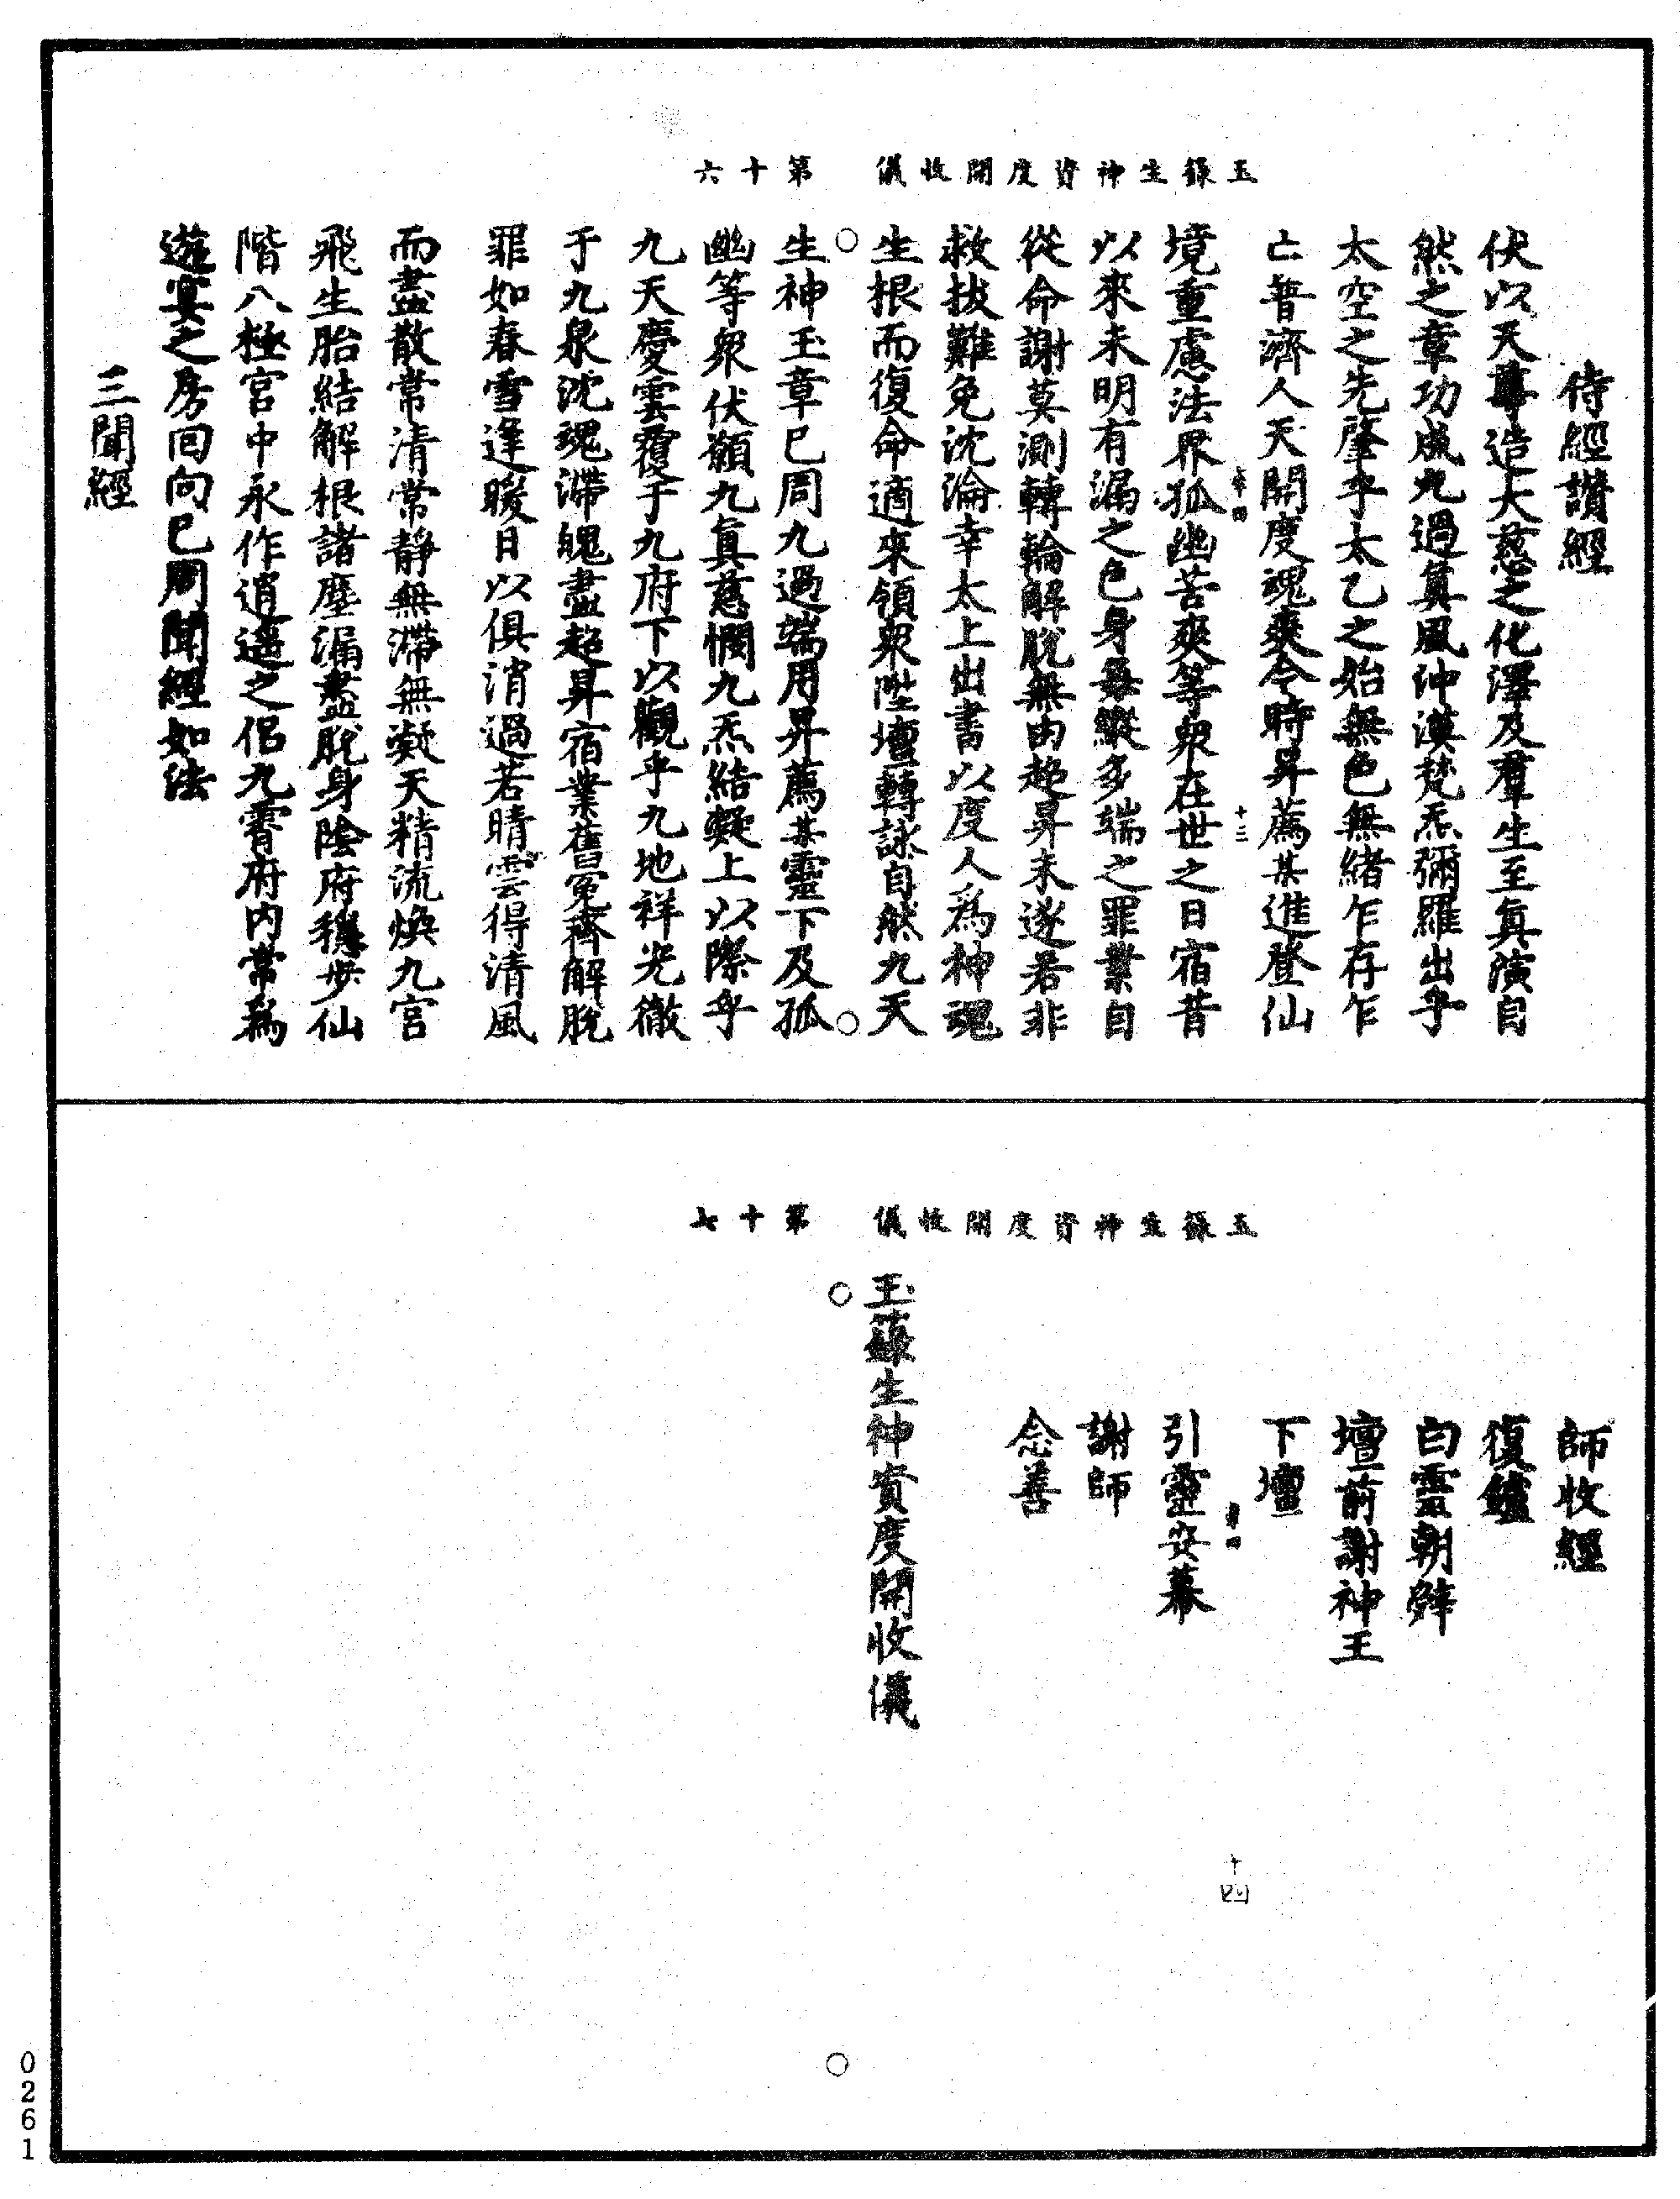 玉籙生神資度開收儀　第十六
侍經讚經
伏以天尊造大慈之化澤及羣生至真演自
然之章功成九過真風沖漠梵炁彌羅出乎
太空之先肇乎太乙之始無色無緒乍存乍
亡普濟人天開度魂爽今時昇薦某進登仙
十三
境重慮法界孤幽苦爽等衆在世之日宿昔
以來未明有漏之色身每縱多端之罪業自
從命謝莫測轉輪解脫無由超昇未遂若非
救拔難免沈淪幸太上出書以度人爲神魂
生根而復命適來領衆陞壇轉詠自然九天
生神玉章已周九過端用昇薦某靈下及孤
幽等衆伏願九真慈憫九炁結凝上以際乎
九天慶雲覆于九府下以觀乎九地祥光徹
于九泉沈魂滯魄盡超昇宿業舊冤齊解脫
罪如春雪逢暖日以俱消過若晴雲得清風
而盡散常清常靜無滯無凝天精流煥九宮
飛生胎結解根諸塵漏盡脫身陰府穩步仙
階八極宮中永作逍遙之侶九霄府內常爲
遊宴之房回向已周聞經如法
三聞經
玉籙生神資度開收儀　第十七
師收經
復鑪
白靈朝辭
壇前謝神王
下壇
十四
引靈安幕
謝師
念善
玉籙生神資度開收儀
0261